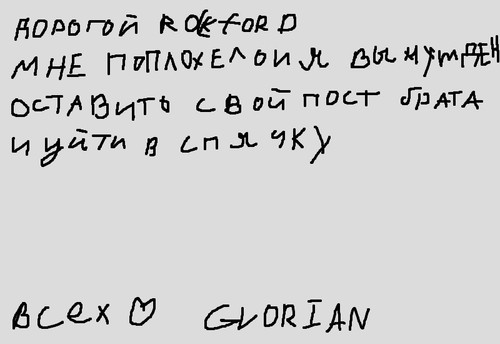 ДОРОГОЙ ROCKFORD
МНЕ ПОПЛОХЕЛО И Я ВЫНУЖДЕН
ОСТАВИТЬ СВОЙ ПОСТ БРАТА
И УЙТИ В СПЯЧКУ
ВСЕХ ♡ GLORIAN